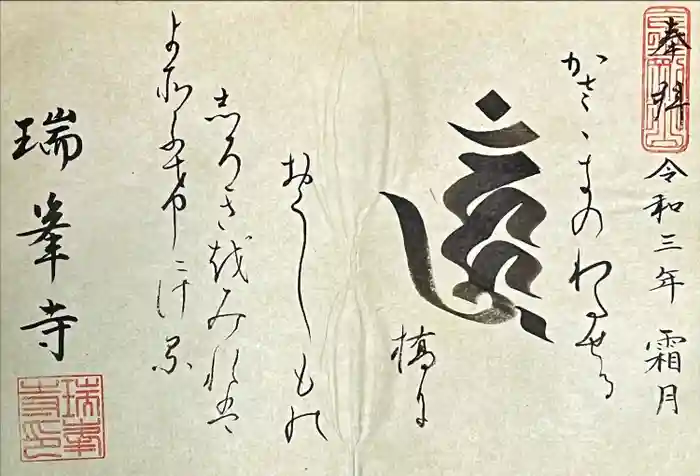 奉拝
令和三年 霜月
かさゝきのわたせる
橋に
おくしもの
志ろき越みれは
よ所ふけにける
瑞峯寺
瑞峯寺印